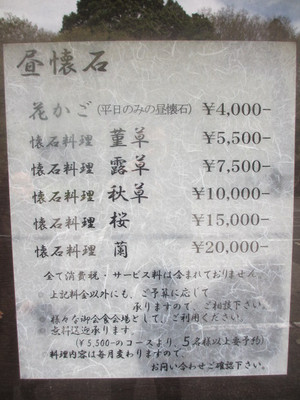 昼懐石
花かご(平日のみの昼懐石) ¥4,000-
懐石料理 菫草 ¥5,500-
懐石料理 露草 ¥7,500-
懐石料理 秋草 ¥10,000-
懐石料理 桜 ¥15,000-
懐石料理 蘭 ¥20,000-
全て消費税・サービス料は含まれておりません。
※上記料金以外にも、ご予算に応じて
承りますので、ご相談下さい。
※様々な御会食会場として、ご利用ください。
※送迎承ります。
(¥5,500-のコースより、5名様以上要予約)
料理内容は毎月変わりますので、
お問い合わせご確認下さい。